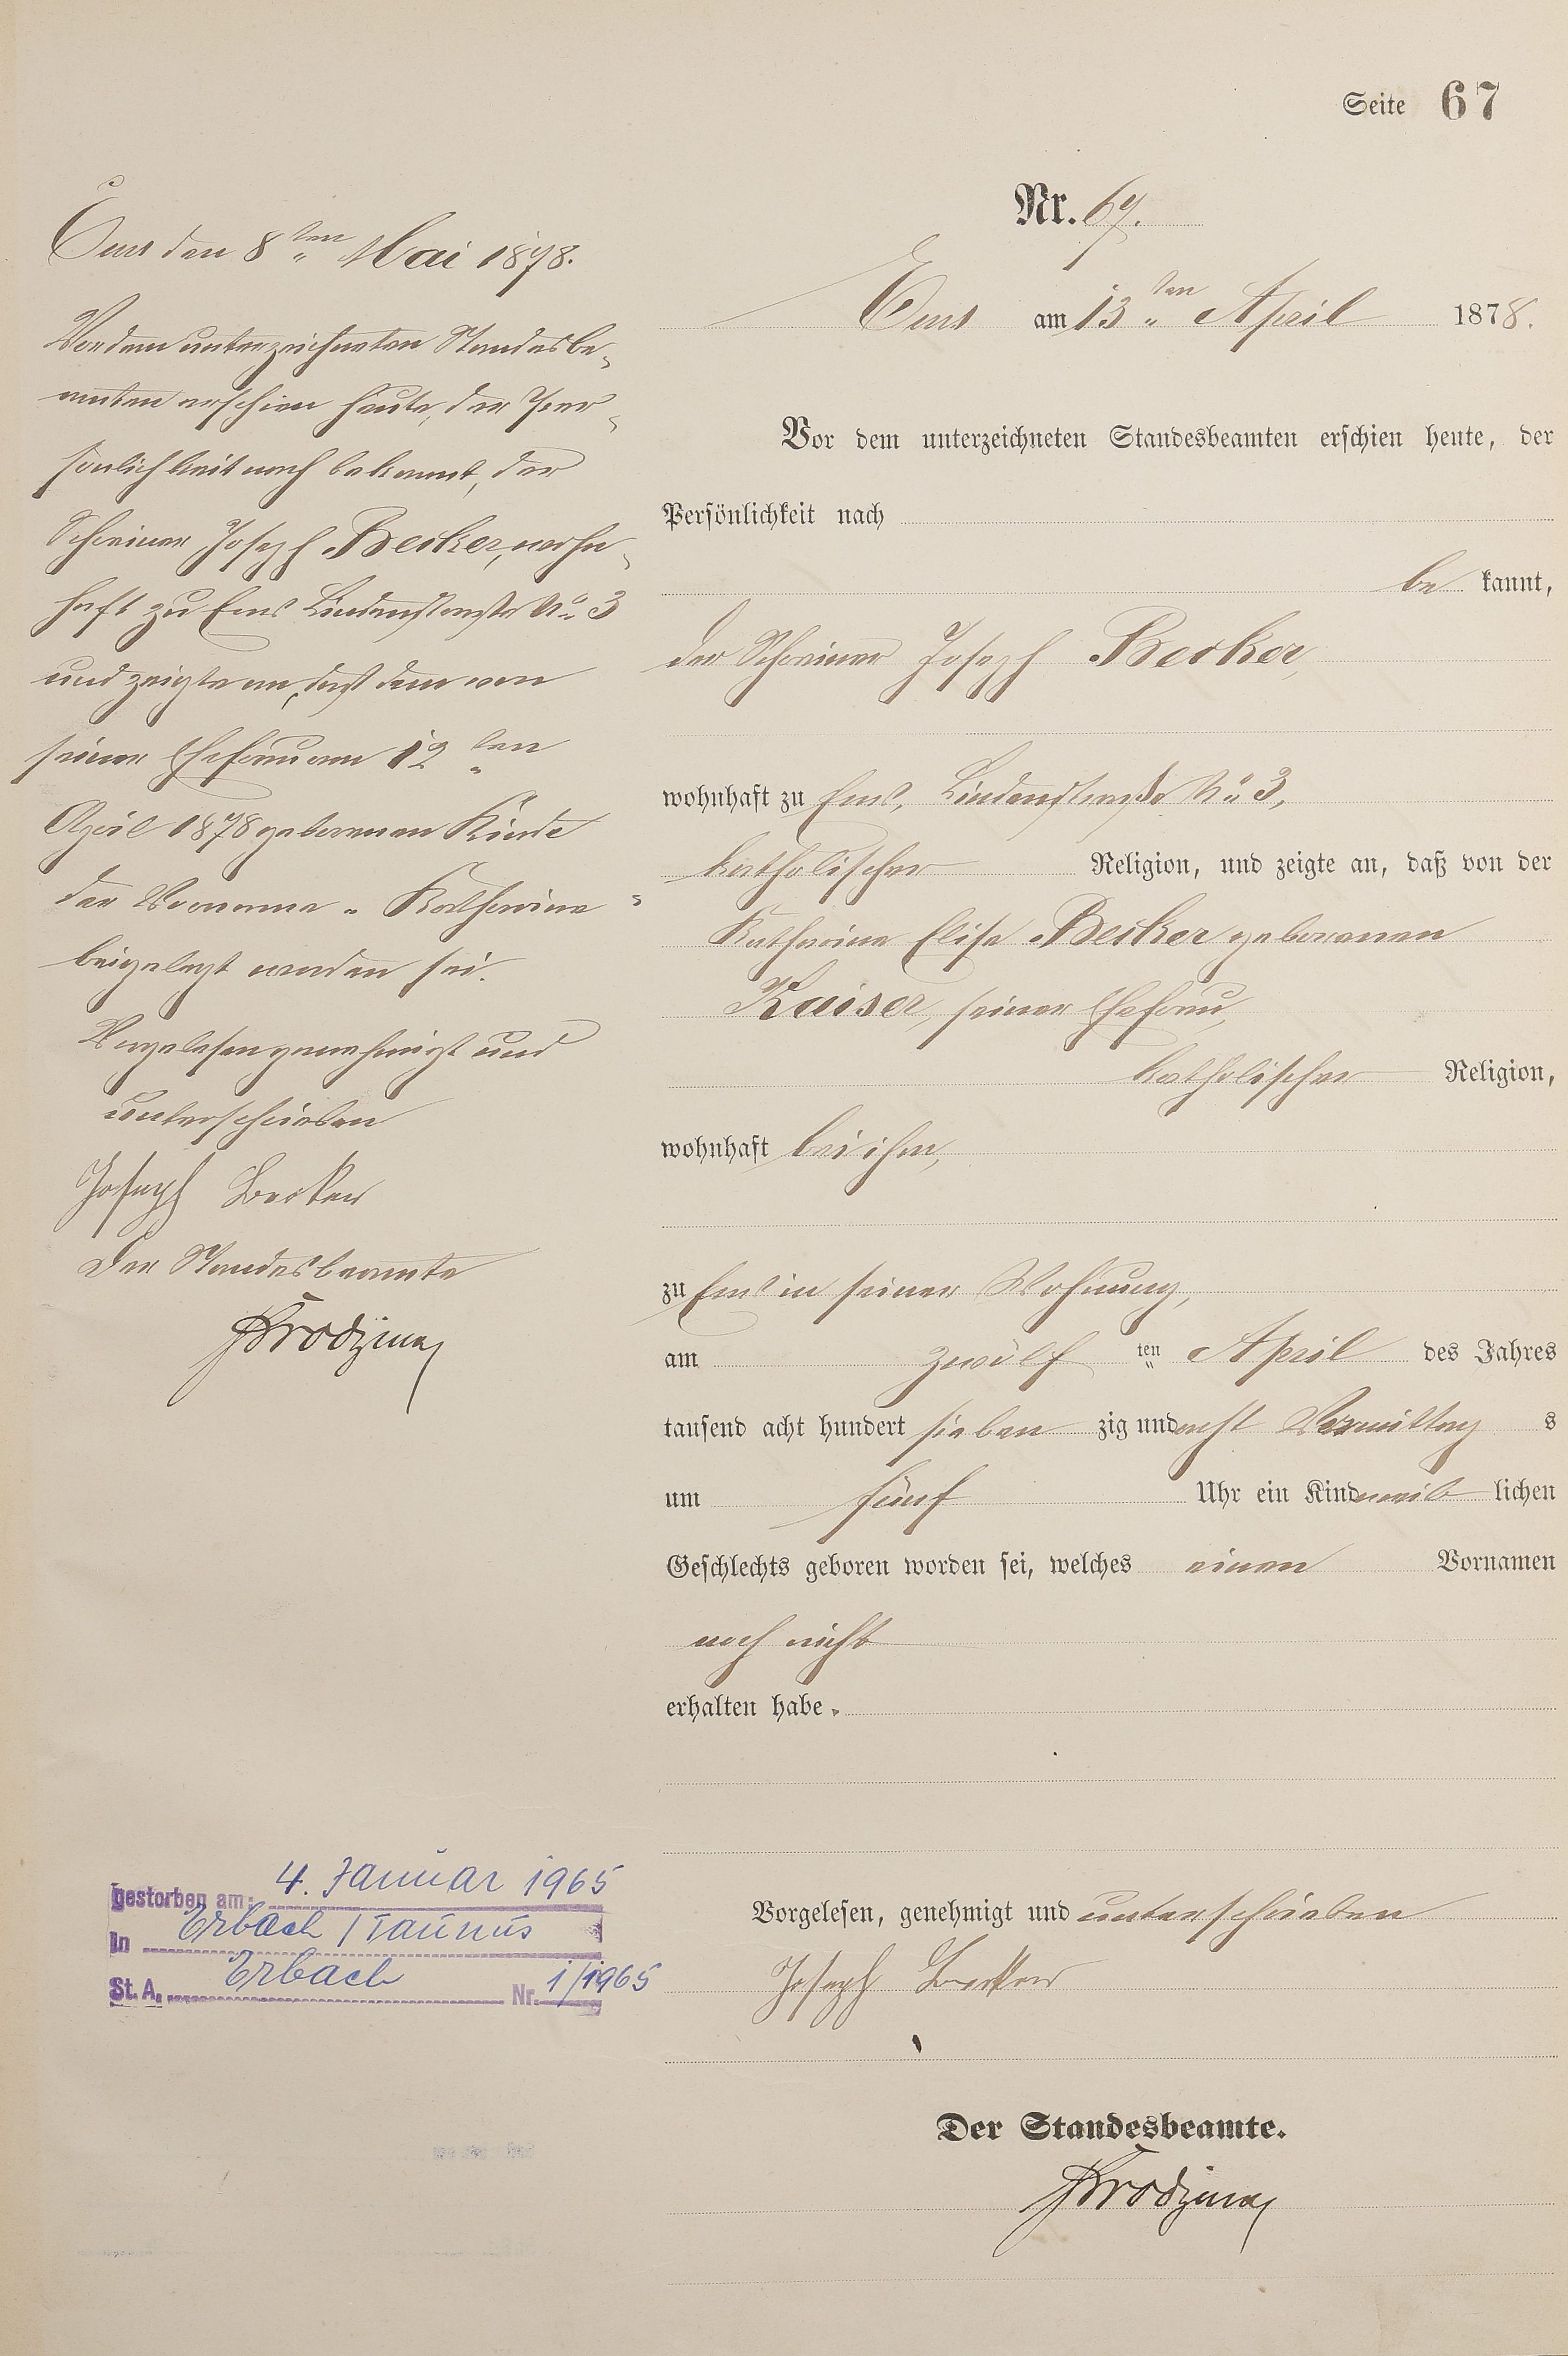 Seite 67
Nr. 67.
Ems am 13ten April 1878.
Vor dem unterzeichneten Standesbeamten erschien heute, der
Persönlichkeit nach
be kannt,
der Schreiner Joseph Becker,
wohnhaft zu Ems, Lindenstraße No 3,
katholischer Religion, und zeigte an, daß von der
Katharina Elisa Becker geborenen
Kaiser, seiner Ehefrau,
katholischer Religion,
wohnhaft bei ihm,
zu Ems in seiner Wohnung,
am zwölf ten April des Jahres
tausend acht hundert sieben zig und acht Vormittag s
um fünf Uhr ein Kind weib lichen
Geschlechts geboren worden sei, welches einen Vornamen
noch nicht
erhalten habe.
Vorgelesen, genehmigt und unterschrieben
Joseph Becker
Der Standesbeamte.
Ems den 8ten Mai 1878.
Vor dem unterzeichneten Standesbe-
amten erschien heute, der Per-
sönlichkeit nach bekannt, der
Schreiner Joseph Becker, wohn-
haft zu Ems Lindenstraße No 3
und zeigte an, daß dem von
seiner Ehefrau am 12ten
April 1878 geborenen Kinde
der Vorname "Katharina"
beigelegt worden sei.
Vorgelesen genehmigt und
unterschrieben
Joseph Becker
Der Standesbeamte
gestorben am: 4. Januar 1965
In Erbach / Taunus
St. A. Erbach Nr. 1/1965